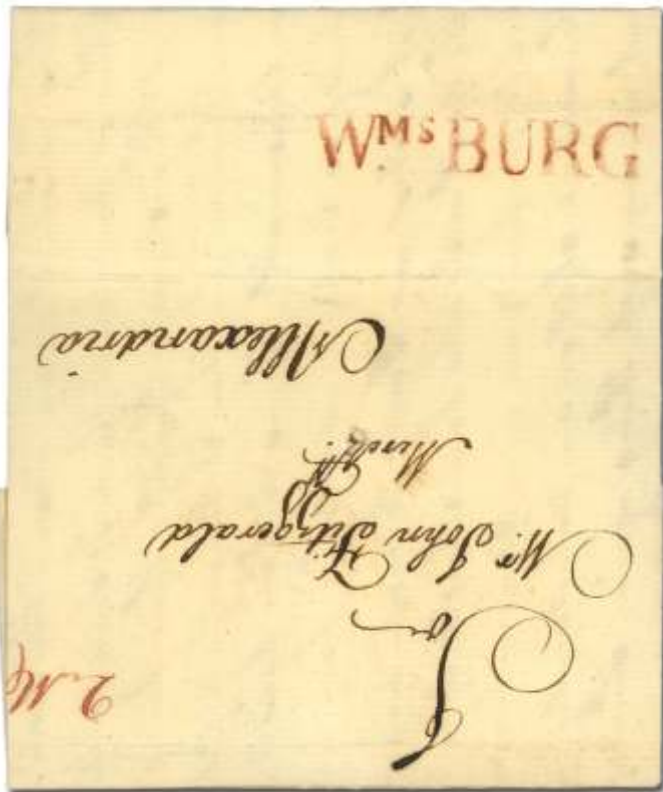 WMS BURG
To
Mr. John Fitzgerald
Mercht.
Allexandria